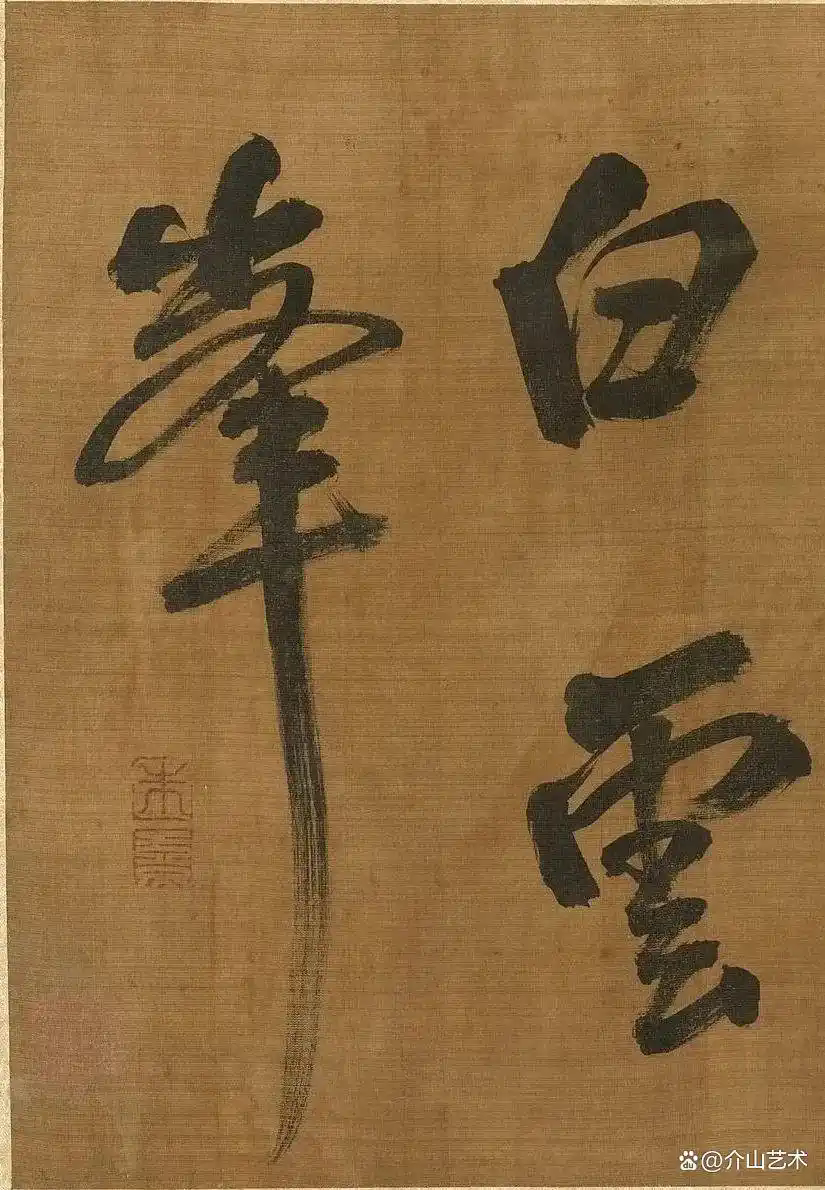 白雲
峯
@介山艺术